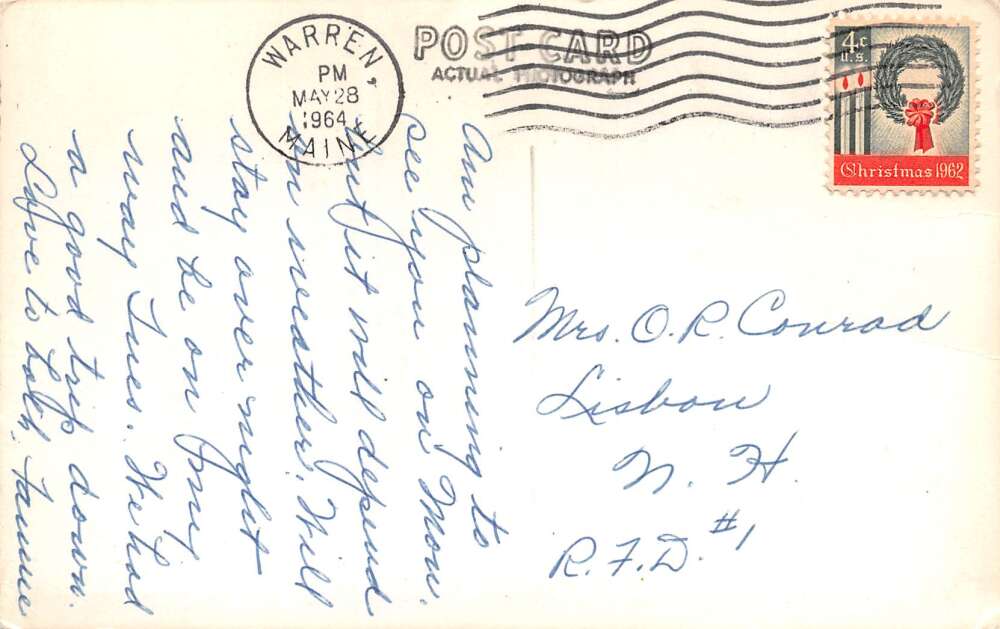 WARREN,
PM
MAY 28
1964
MAINE
POST CARD
ACTUAL PHOTOGRAPH
4c
U.S.
Christmas 1962
Am planning to
see you on Mon.
but it will depend
on weather. Will
stay over night
and be on my
way Tues. We had
a good trip down.
Love to both,
Mrs. O. R. Conrad
Lisbon
N. H.
R. F. D. #1